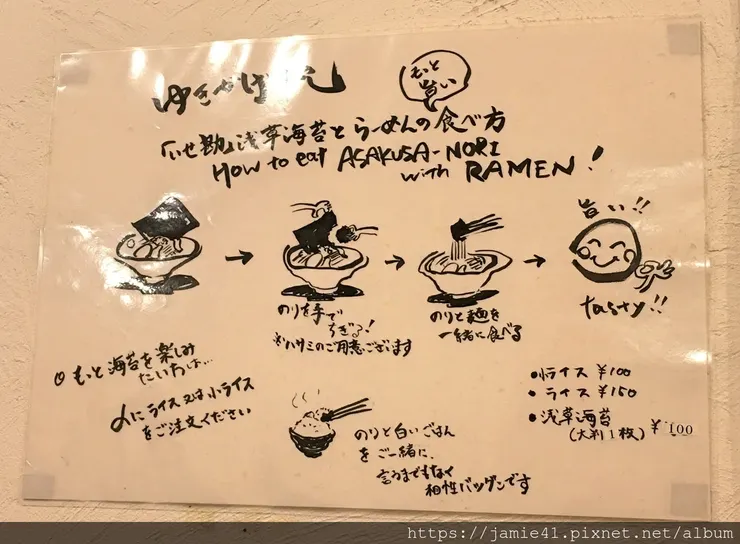 ゆきかげ
もっと
旨い
「いせ勘」浅草海苔とらーめんの食べ方
How to eat ASAKUSA-NORI
with RAMEN!
旨い!!
tasty!!
のりを手で
ちぎる!
※ハサミのご用意ございます
のりと麺を
一緒に食べる
◎もっと海苔を楽しみ
たい方は…
〆にライス又は小ライス
をご注文ください
のりと白いごはん
をご一緒に、
言うまでもなく
相性バツグンです
•小ライス ¥100
•ライス ¥150
•浅草海苔 ¥100
(大判1枚)
https://jamie41.pixnet.net/album